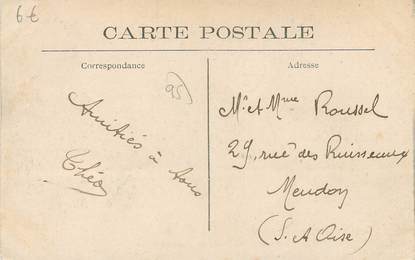 6€
CARTE POSTALE
Correspondance
Adresse
95
Amitiés à tous
Théo
Mr et Mme Roussel
29, rue des Ruisseaux
Meudon
(S. et Oise)